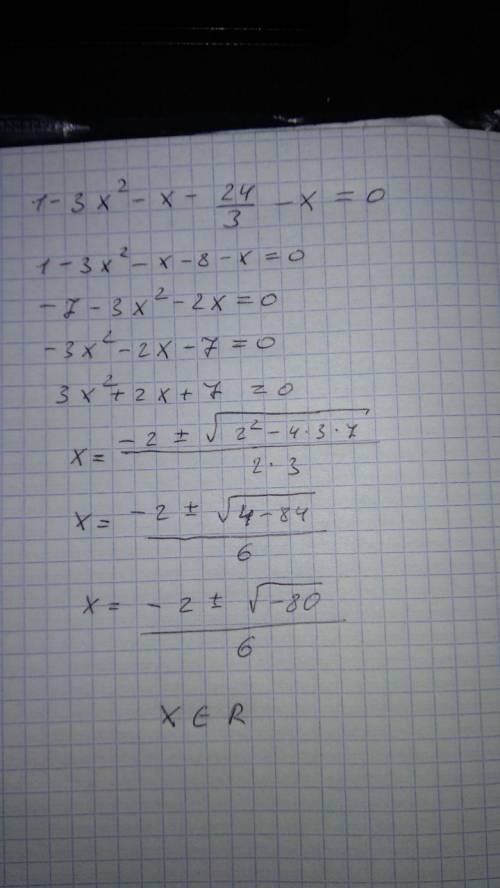 1 - 3x² - x - 24/3 - x = 0
1 - 3x² - x - 8 - x = 0
-7 - 3x² - 2x = 0
-3x² - 2x - 7 = 0
3x² + 2x + 7 = 0
x = (-2 ± √(2² - 4·3·7))/(2·3)
x = (-2 ± √(4 - 84))/6
x = (-2 ± √(-80))/6
x ∈ R